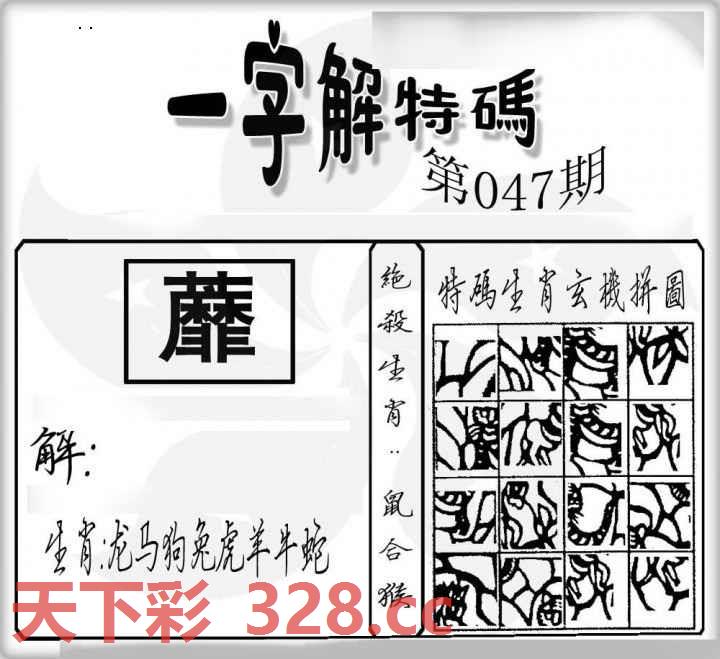 一字解特碼
第047期
蘼
解:
生肖:龙马狗兔虎羊牛蛇
絶殺生肖:鼠合猴
特碼生肖玄機拼圖
天下彩 328.cc